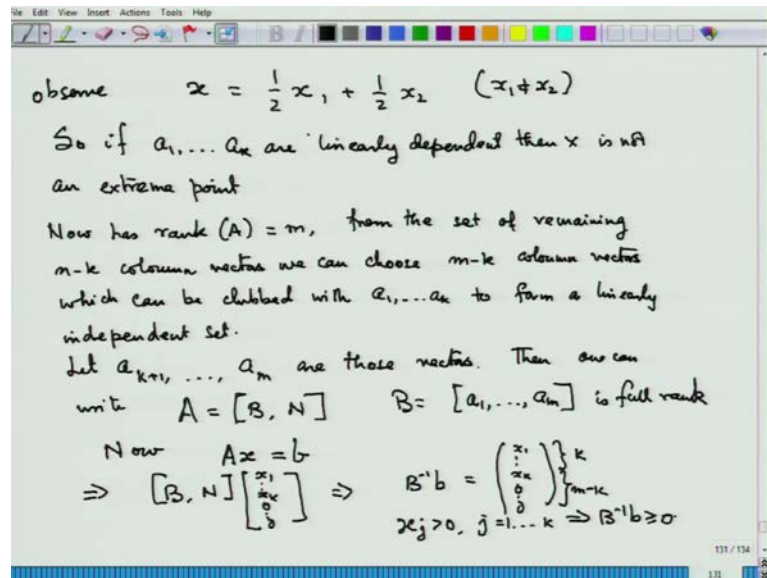 File Edit View Insert Actions Tools Help
observe x = 1/2 x₁ + 1/2 x₂ (x₁ ≠ x₂)
So if a₁, ... aₖ are linearly dependent then x is not
an extreme point
Now has rank (A) = m, from the set of remaining
n-k coloumn vectors we can choose m-k coloumn vectors
which can be clubbed with a₁, ... aₖ to form a linearly
independent set.
Let aₖ₊₁, ..., aₘ are those vectors. Then one can
write A = [B, N] B = [a₁, ..., aₘ] is full rank
Now Ax = b
⇒ [B, N] [x₁ ⋮ xₖ 0 ⋮ 0] ⇒ B⁻¹b = (x₁ ⋮ xₖ 0 ⋮ 0) } k } m-k
xⱼ > 0, j = 1 ... k ⇒ B⁻¹b ≥ 0
131 / 134
131